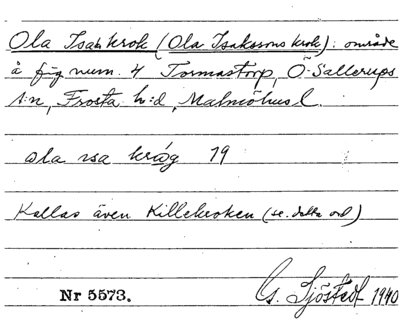 Ola Isakkrok (Ola Isakssons krok): område
å fig. num. 4 Tormastorp, Ö. Sallerups
s:n, Frosta h:d, Malmöhus l.
ola isa 19
Kallas även Killekroken (se detta ord)
Nr 5573. G. Sjöstedt 1940